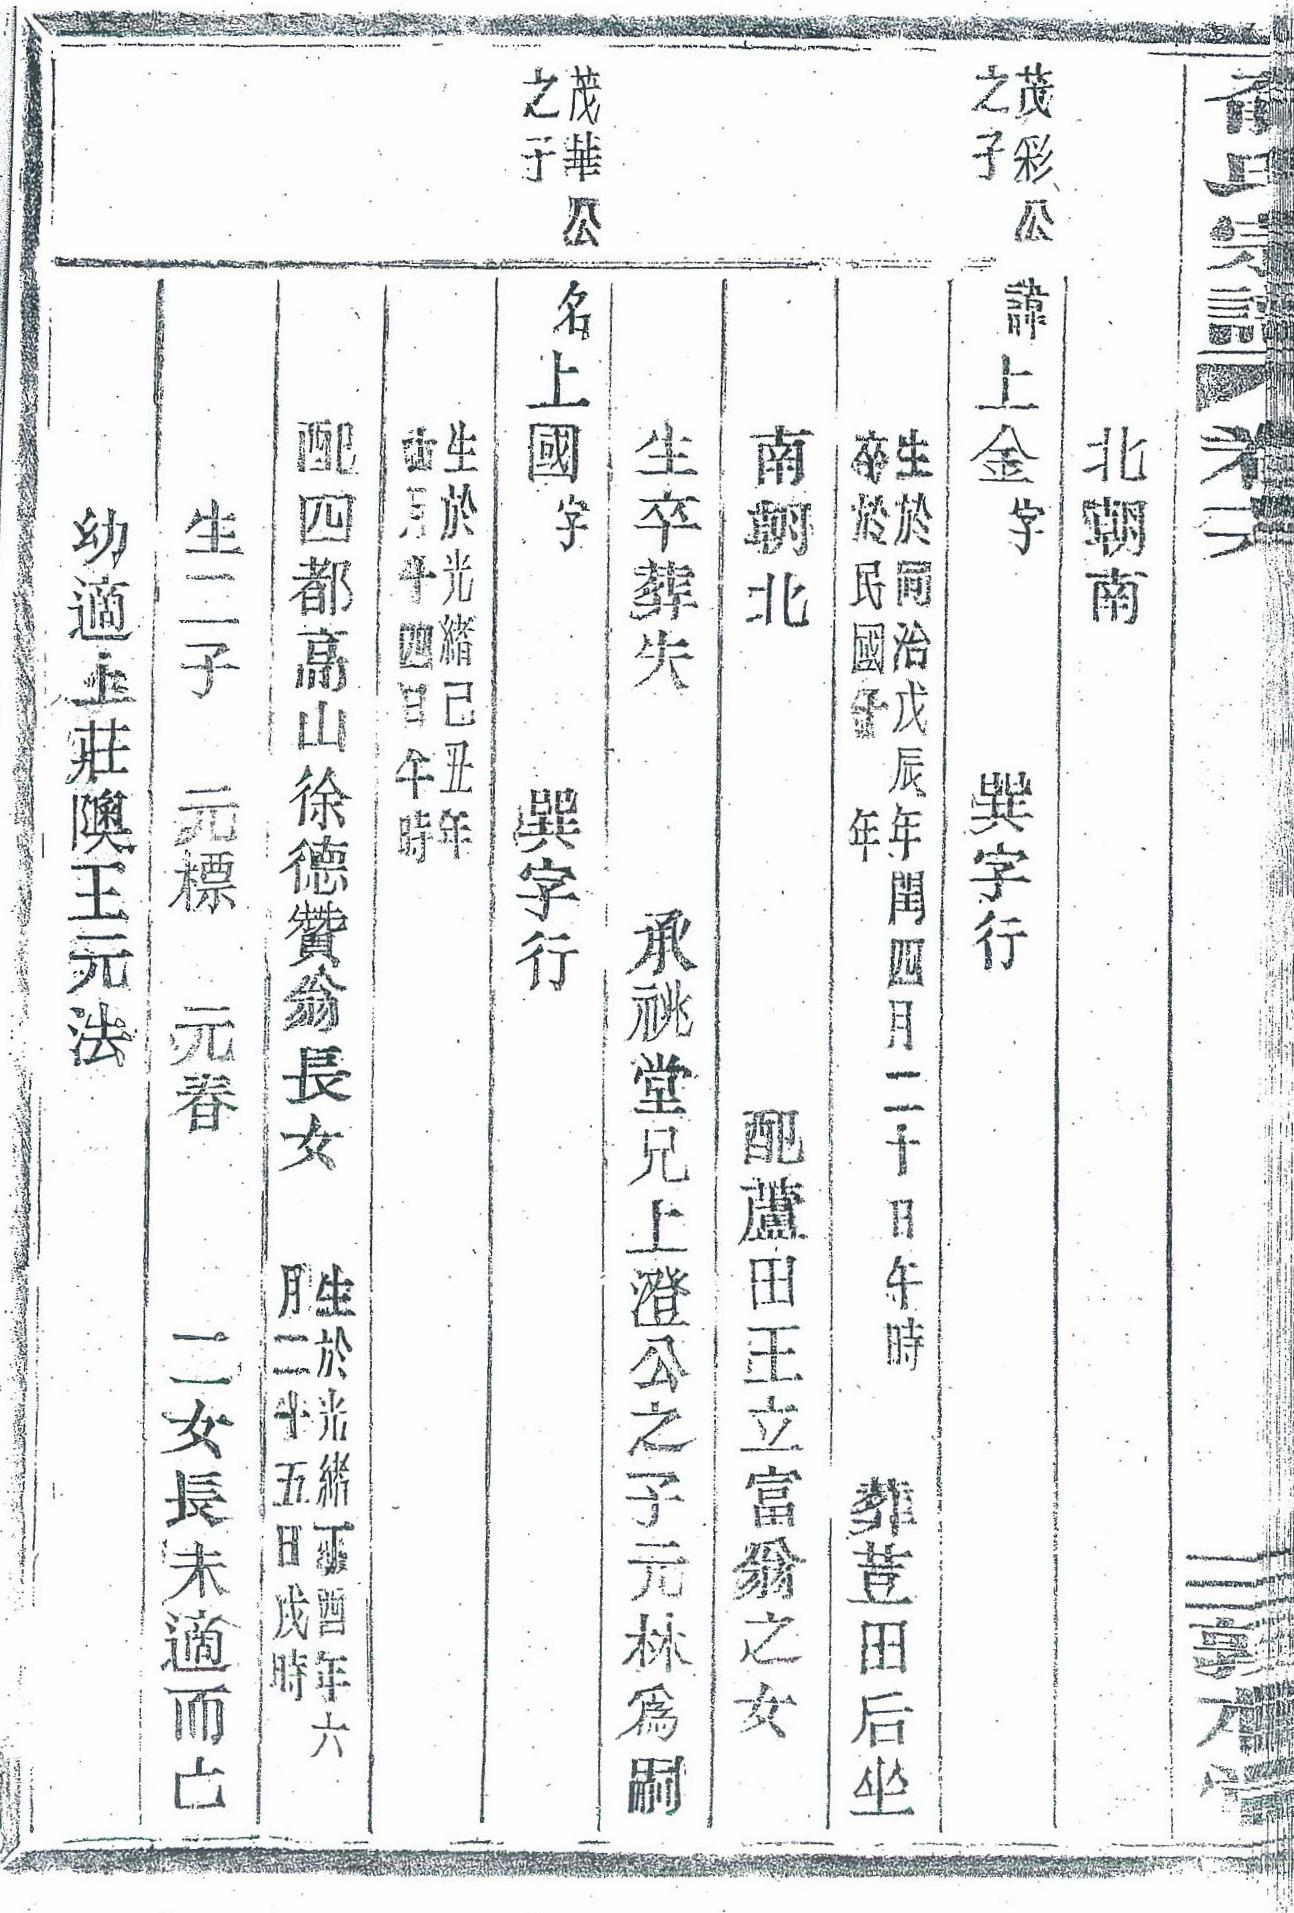 氏宗譜 卷六
三 敦
北朝南
茂彩公
之子
諱上金字 巽字行
生於同治戊辰年閏四月二十日午時
卒於民國 年
葬荳田后坐
南朝北 配蘆田王立富翁之女
生卒葬失 承祧堂兄上澄公之子元林爲嗣
茂華公
之子
名上國字 巽字行
生於光緒己丑年
月十四日午時
配四都高山徐德贊翁長女
生於光緒丁酉年六
月二十五日戌時
生二子 元標 元春 二女長未適而亡
幼適上莊隩王元法